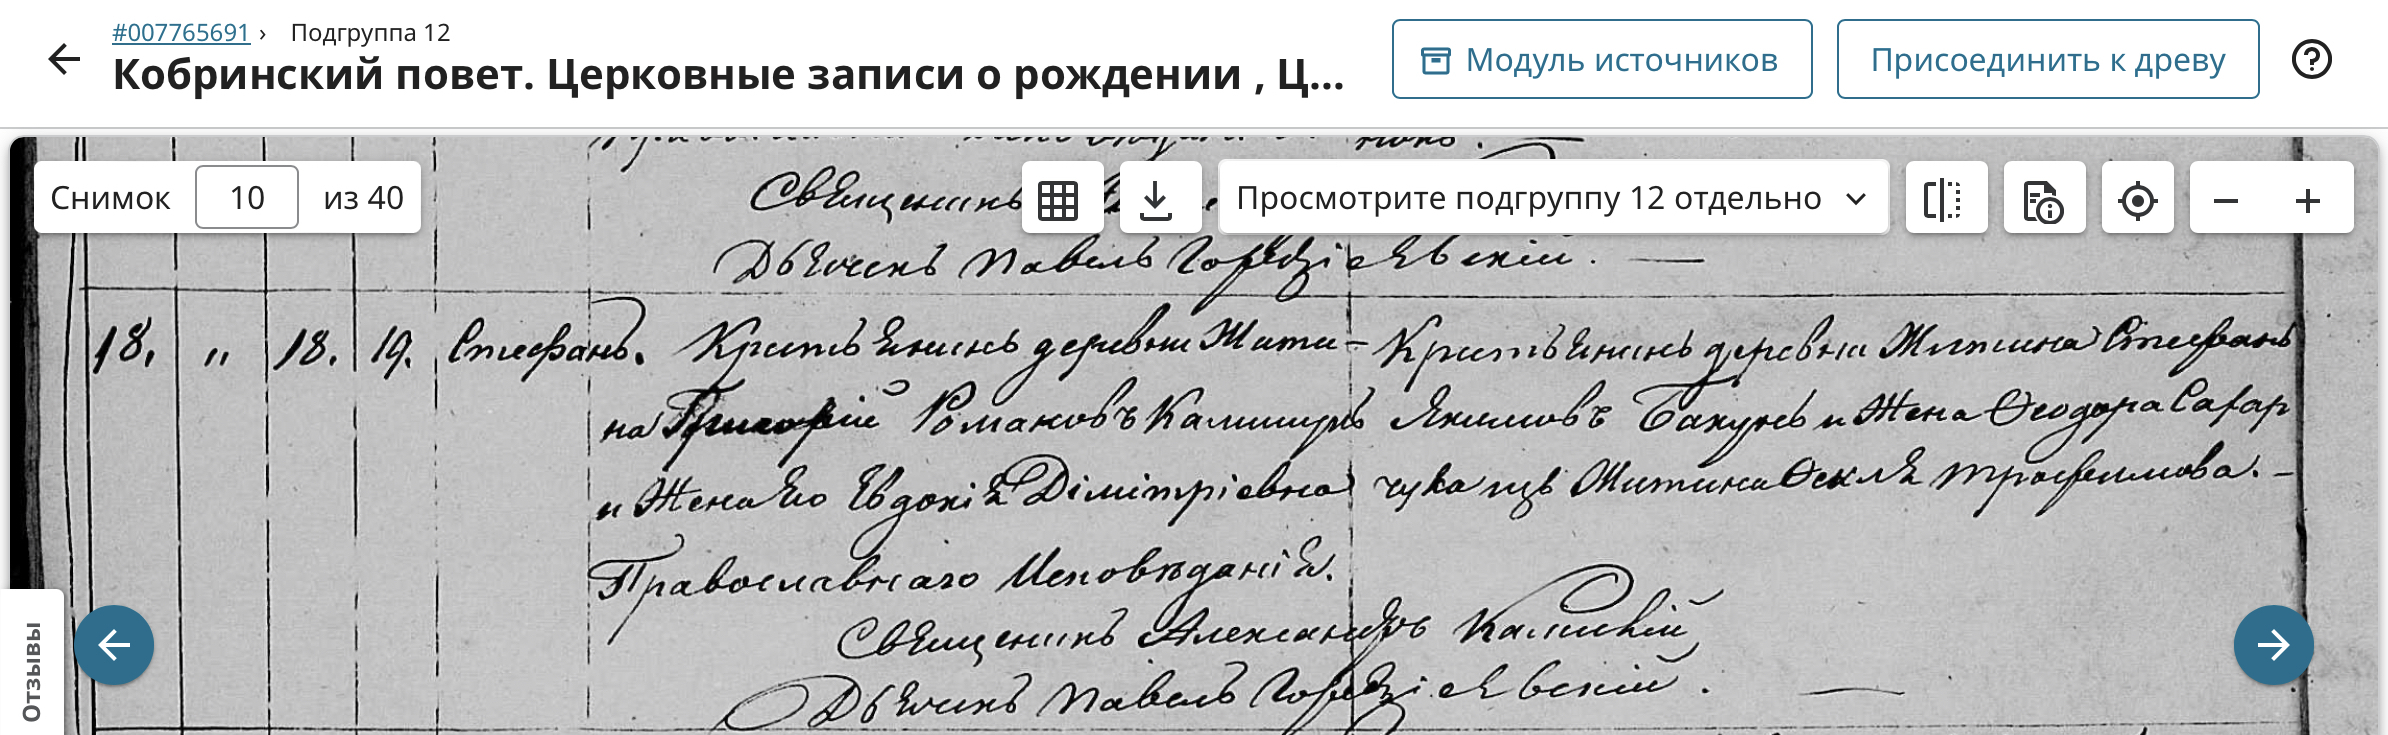 #007765691 › Подгруппа 12
Кобринский повет. Церковные записи о рождении , Ц...
Модуль источников
Присоединить к древу
Снимок 10 из 40
Просмотрите подгруппу 12 отдельно
Священникъ
Дьячекъ Павелъ Гордзіевскій.
18. " 18. 19. Стефанъ. Крестьянинъ деревни Жити- Крестьянинъ деревни Житина Стефанъ
на Григорій Романовъ Калишукъ Якимовъ Бакунъ и Жена Ѳеодора Захар
и Жена Его Евдокія Димітріевна чука изъ Житина Ѳекля Трофимова.
Православнаго Исповѣданія.
Священникъ Александръ
Дьячекъ Павелъ Гордзіевскій.
Отзывы